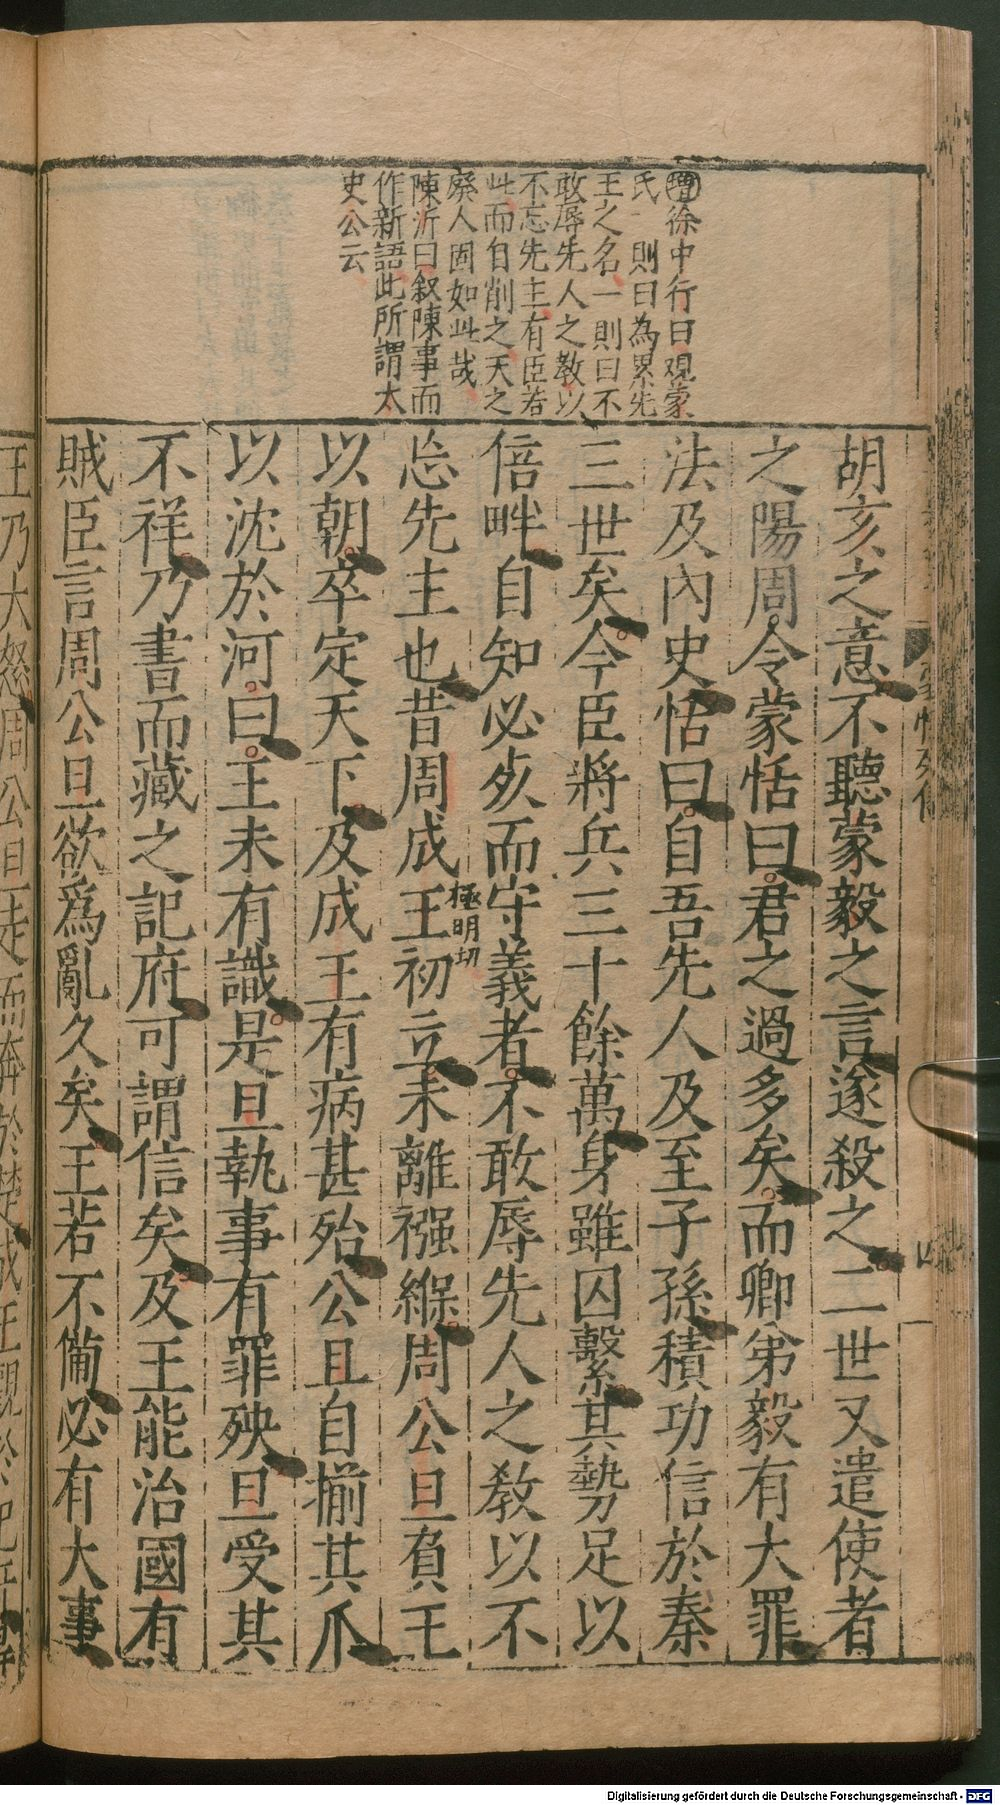 增徐中行曰觀蒙
氏一則曰為累先
王之名一則曰不
敢辱先人之教以
不忘先主有臣若
此而自削之天之
廢人固如此哉
陳沂曰叙陳事而
作新語此所謂太
史公云
胡亥之意不聽蒙毅之言遂殺之二世又遣使者
之陽周令蒙恬曰君之過多矣而卿弟毅有大罪
法及內史恬曰自吾先人及至子孫積功信於秦
三世矣今臣將兵三十餘萬身雖囚繫其勢足以
倍畔自知必死而守義者不敢辱先人之教以不
極明切
忘先主也昔周成王初立未離襁緥周公旦負王
以朝卒定天下及成王有病甚殆公旦自揃其爪
以沈於河曰王未有識是旦執事有罪殃旦受其
不祥乃書而藏之記府可謂信矣及王能治國有
賊臣言周公旦欲爲亂久矣王若不備必有大事
王乃大怒周公旦走而奔於楚成王觀於記府
蒙恬列傳
四
Digitalisierung gefördert durch die Deutsche Forschungsgemeinschaft - DFG